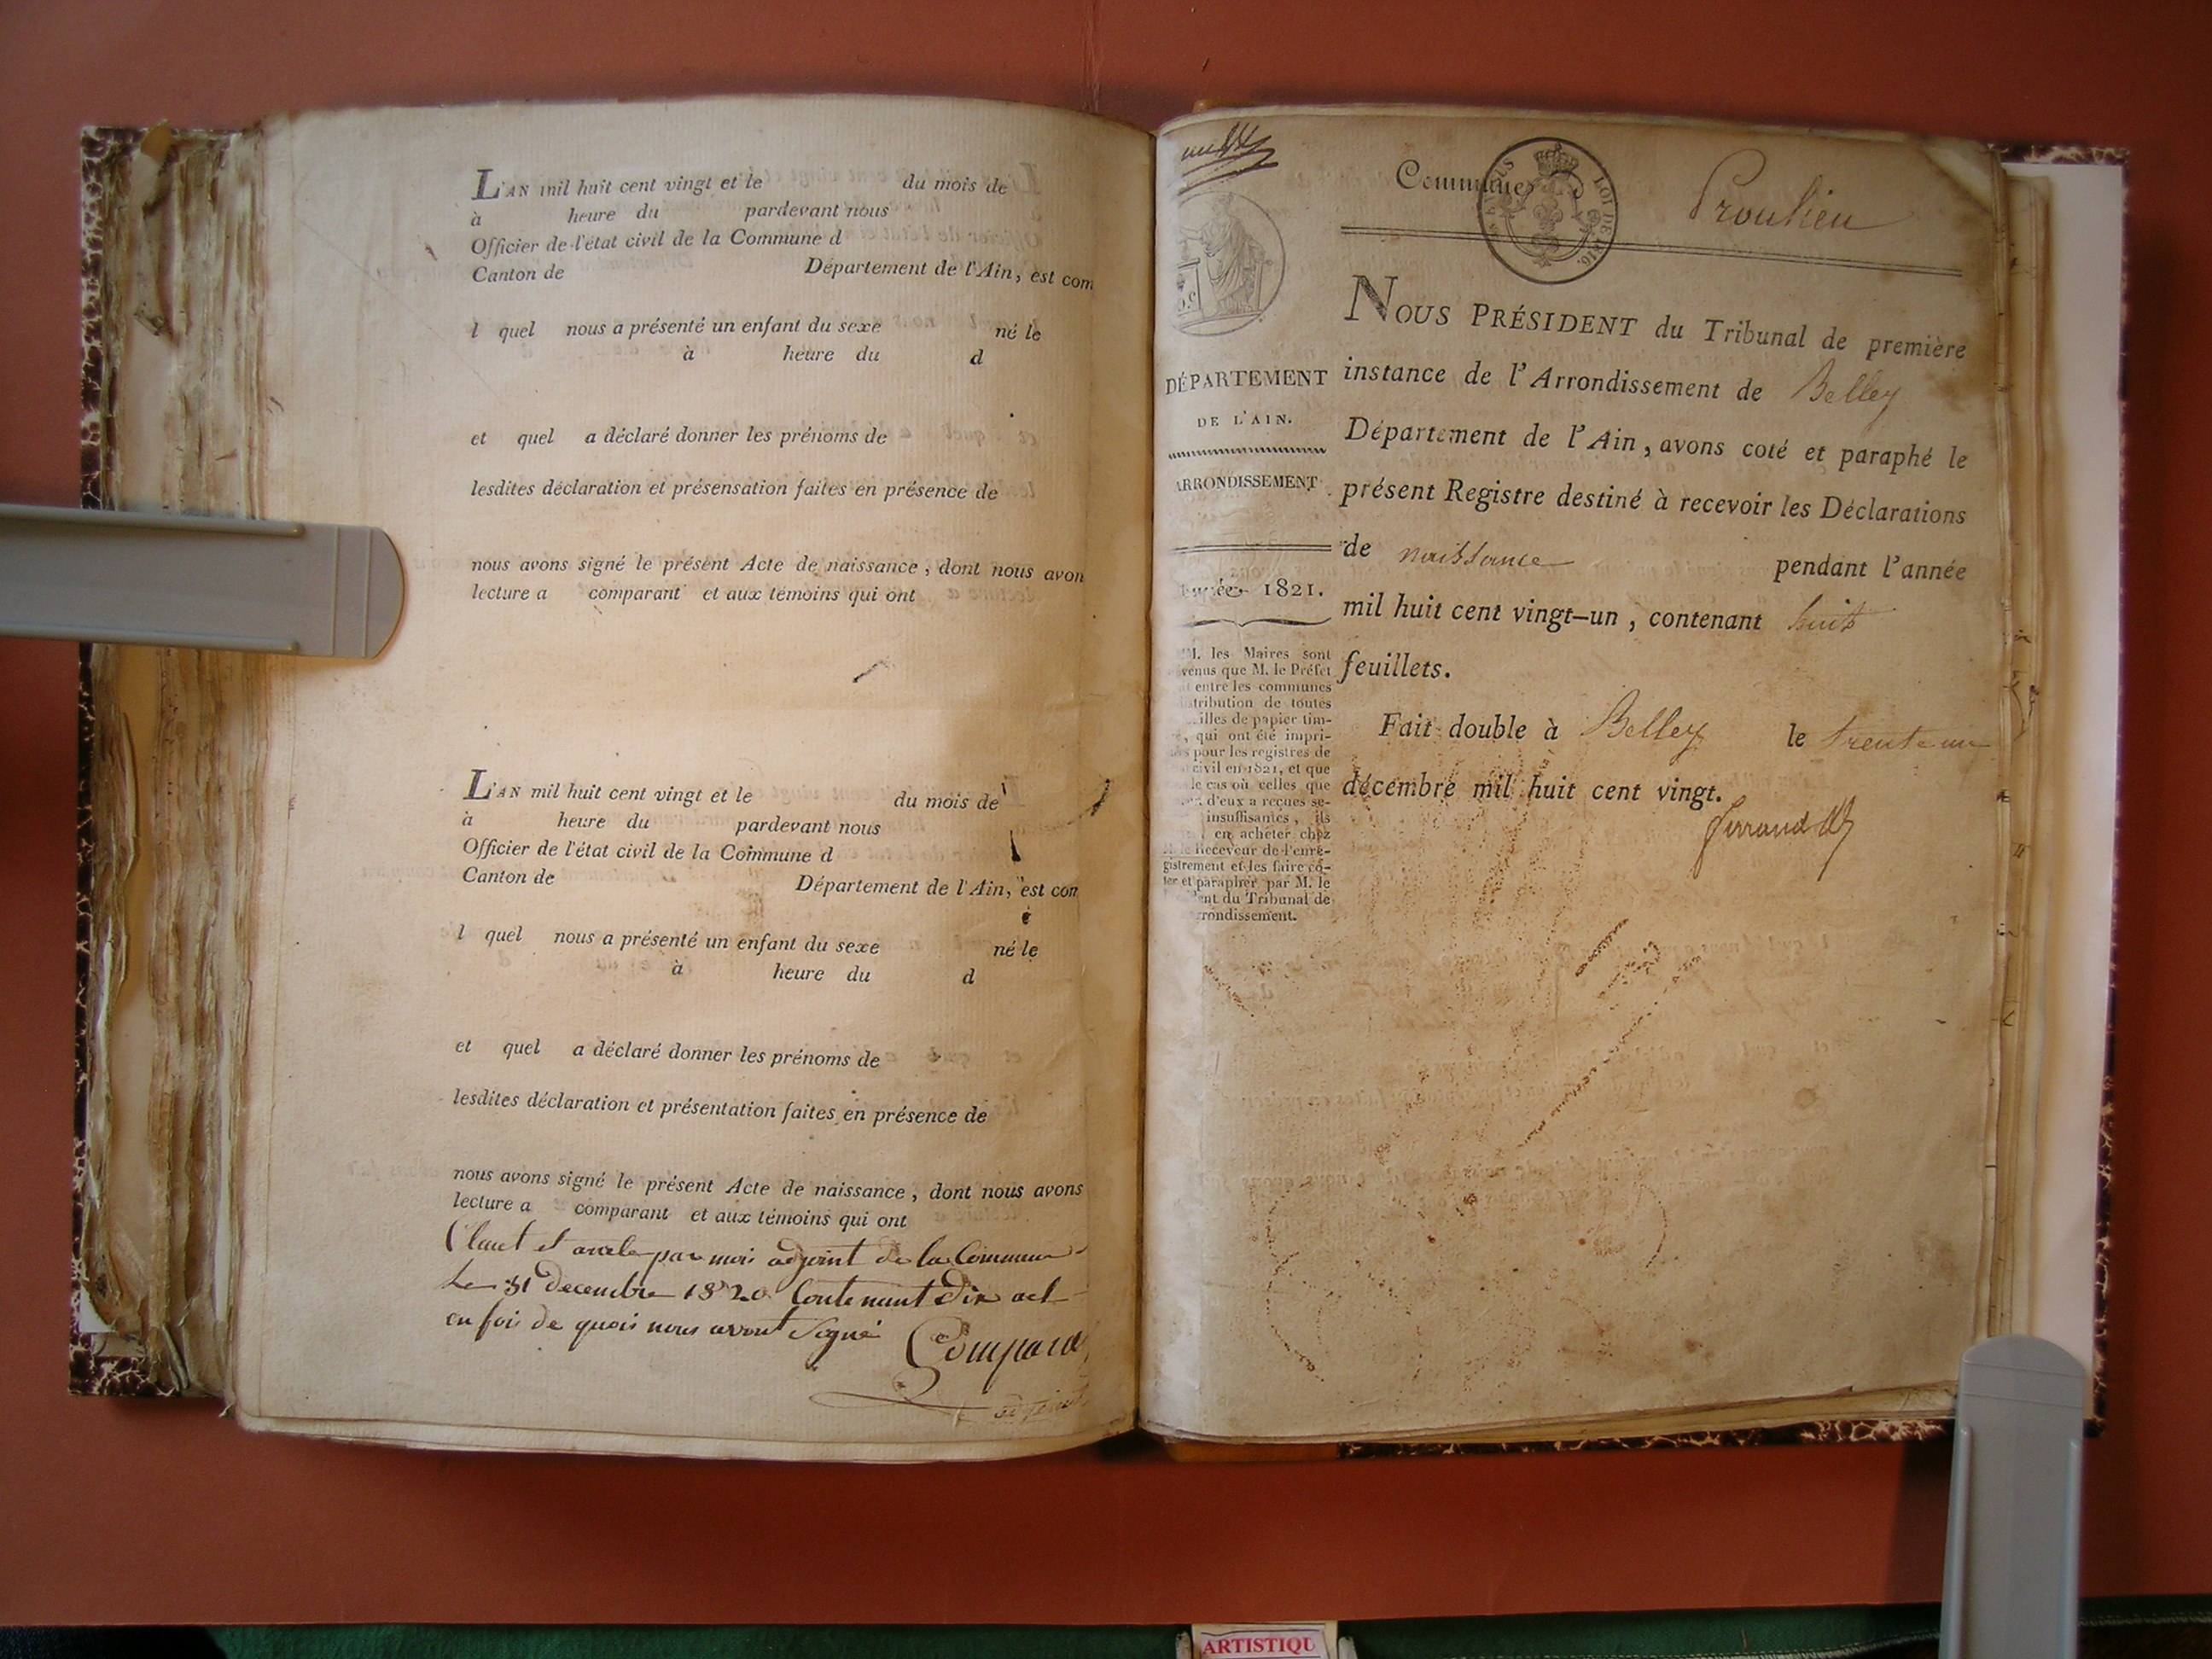 L'AN mil huit cent vingt et le du mois de
à heure du pardevant nous
Officier de l'état civil de la Commune d
Canton de Département de l'Ain, est com
l quel nous a présenté un enfant du sexe né le
à heure du d
et quel a déclaré donner les prénoms de
lesdites déclaration et présensation faites en présence de
nous avons signé le présent Acte de naissance, dont nous avon
lecture a comparant et aux témoins qui ont
L'AN mil huit cent vingt et le du mois de
à heure du pardevant nous
Officier de l'état civil de la Commune d
Canton de Département de l'Ain, est com
l quel nous a présenté un enfant du sexe né le
à heure du d
et quel a déclaré donner les prénoms de
lesdites déclaration et présentation faites en présence de
nous avons signé le présent Acte de naissance, dont nous avons
lecture a comparant et aux témoins qui ont
par moi adjoint de la Commune
Le 31 decembre 1820 Contenant Dix act
en foi de quoi nous avont Signé
Compard
adjoint
Commune Proulieu
LOI DE 1816.
NOUS PRÉSIDENT du Tribunal de première
instance de l'Arrondissement de Belley
Département de l'Ain, avons coté et paraphé le
présent Registre destiné à recevoir les Déclarations
de naissance pendant l'année
mil huit cent vingt-un, contenant huit
feuillets.
Fait double à Belley le trente un
décembre mil huit cent vingt.
DÉPARTEMENT
DE L'AIN.
ARRONDISSEMENT
Année 1821.
M. les Maires sont
venus que M. le Préfet
entre les communes
tribution de toutes
illes de papier tim-
, qui ont été impri-
pour les registres de
civil en 1821, et que
le cas où celles que
d'eux a reçues se-
insuffisantes, ils
en acheter chez
le Receveur de l'enre-
gistrement et les faire co-
ter et parapher par M. le
ent du Tribunal de
rondissement.
ARTISTIQU